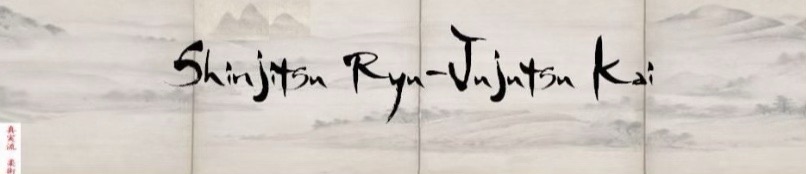 Shinjitsu Ryu-Jujutsu Kai
真実流 柔術